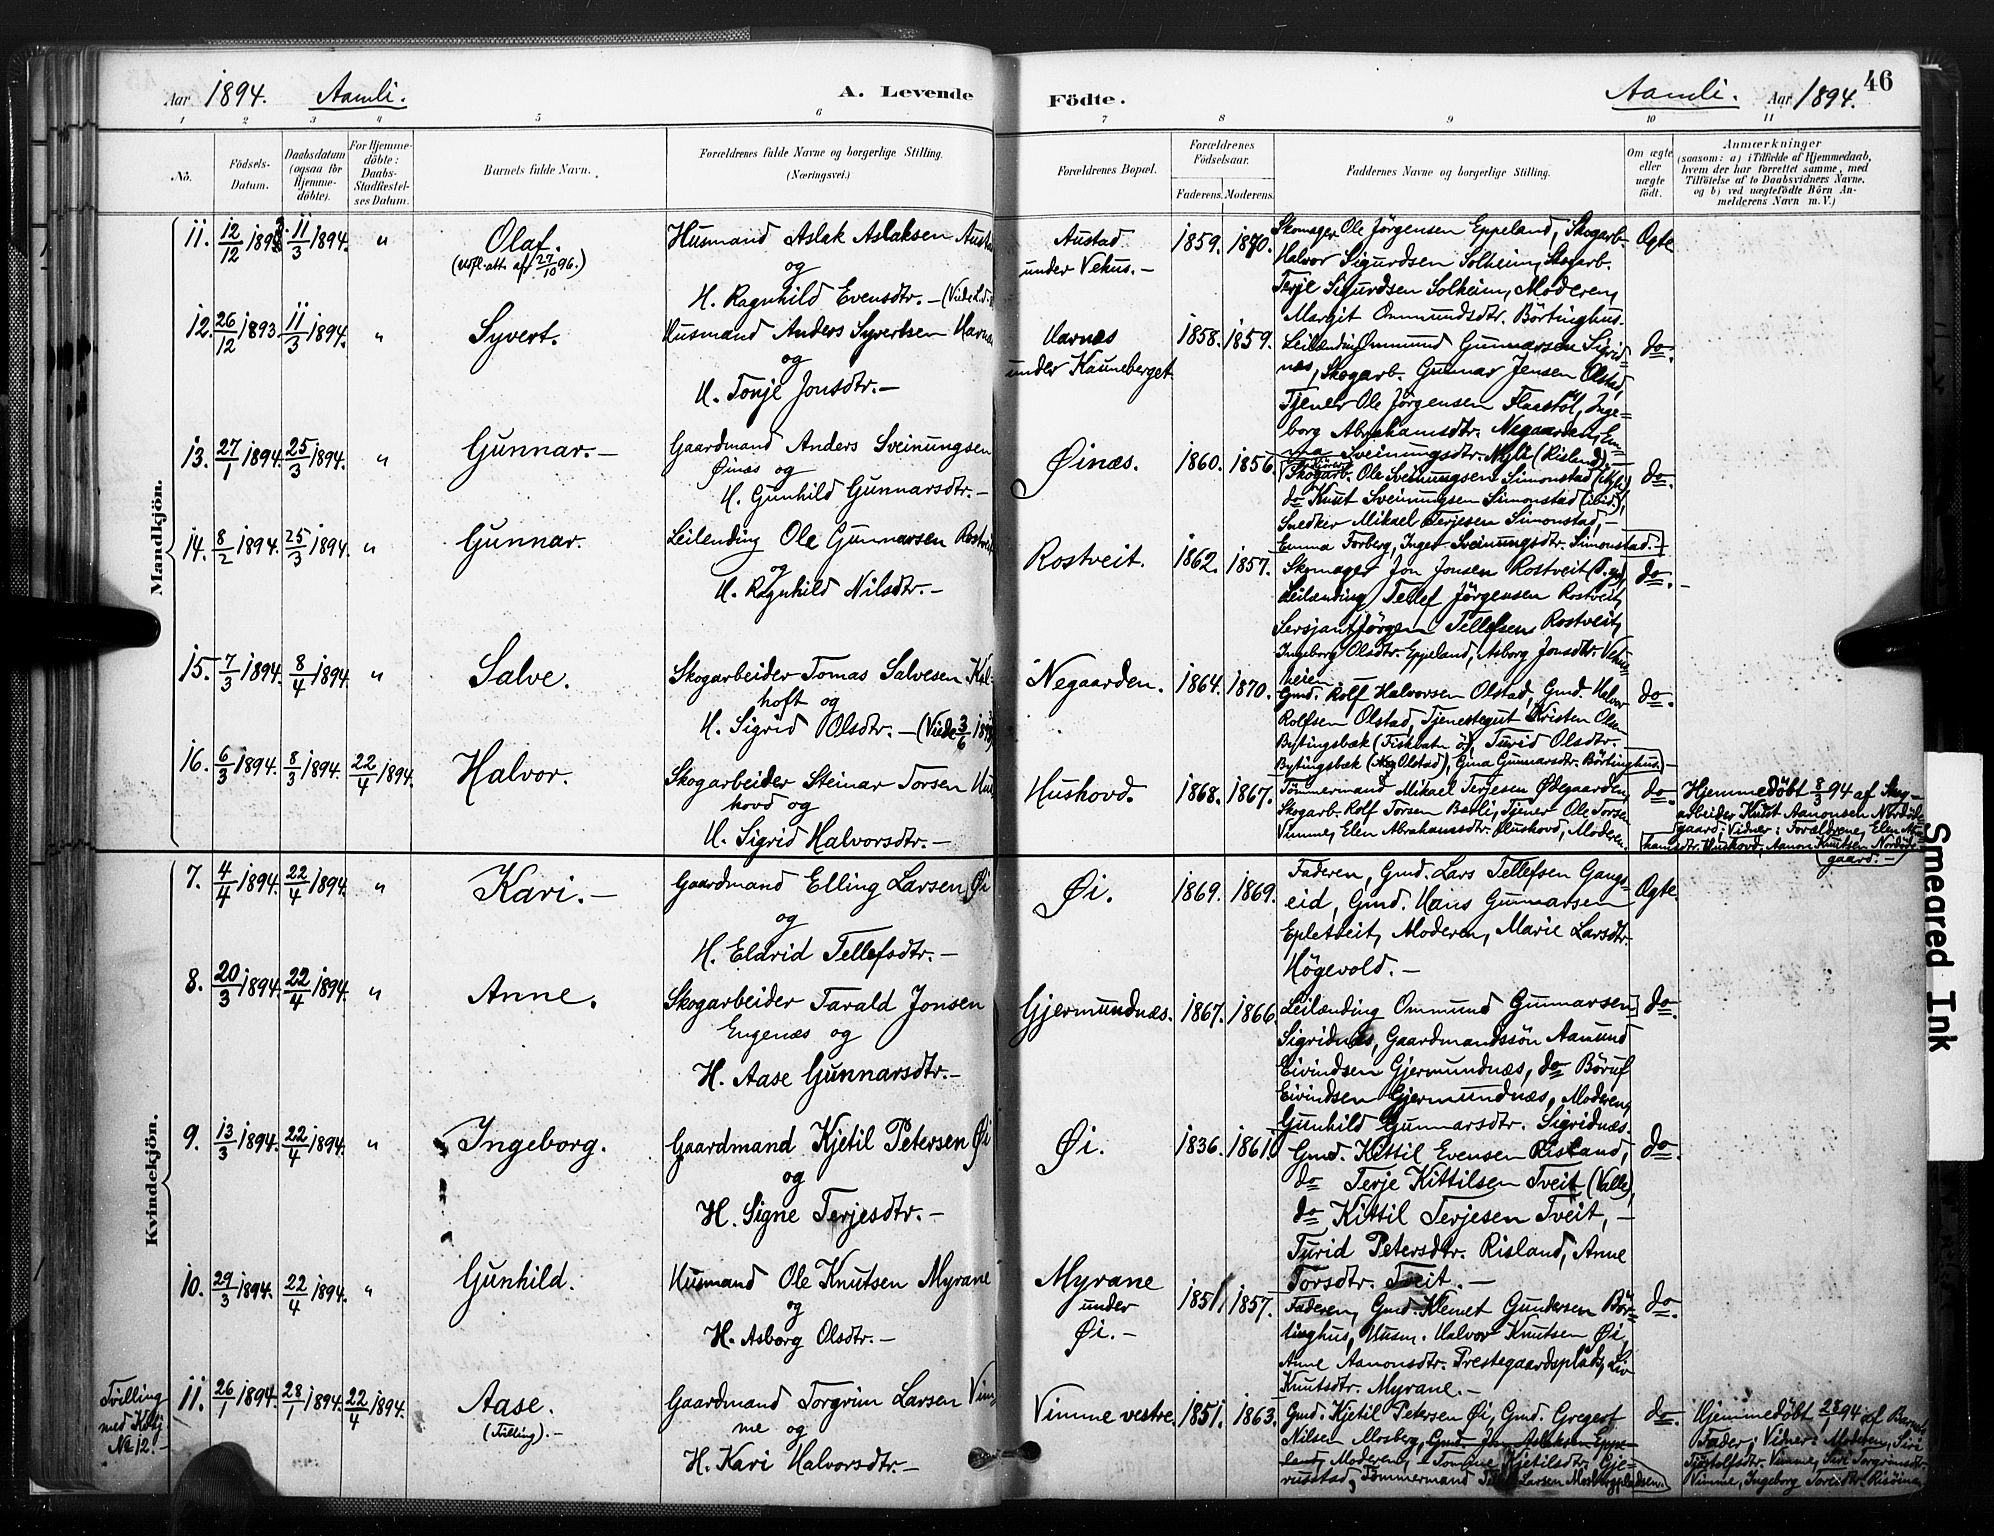 Aar 1894. Aamli. A. Levende Födte. Aamli. Aar 1894. 46
1 2 3 4 5 6 7 8 9 10 11
No.
Födsels-Datum.
Daabsdatum (ogsaa for Hjemme-döbte).
For Hjemme-döbte: Daabs-Stadfæstel-ses Datum.
Barnets fulde Navn.
Forældrenes fulde Navne og borgerlige Stilling. (Næringsvei.)
Forældrenes Bopæl.
Forældrenes Födselsaar.
Faderens. Moderens.
Faddernes Navne og borgerlige Stilling.
Om ægte eller uægte födt.
Anmærkninger
(saasom: a) i Tilfælde af Hjemmedaab,
hvem der har forrettet samme, med
Tilföielse af to Daabsvidners Navne,
og b) ved uægtefödte Börn An-
melderens Navn m. V.)
Mandkjön.
11. 12/12 1893. 11/3 1894. " Olaf.
Husmand Aslak Aslaksen
og
H. Ragnhild Evensdtr. –
Austad
under Vehus. –
1859. 1870.
Skomager Ole Jörgensen Eppeland, Skogarb.
Halvor Sigurdsen Solheim, Skogarb.
Terje Sigurdsen Solheim, Moderen,
Margit Ommundsdtr. Börtinghus.
Ægte
12. 26/12 1893. 11/3 1894. " Syvert.
Husmand Anders Syvertsen
og
H. Tonje Jonsdtr. –
Harnæs
under Kauneberget
1858. 1859.
Leilænding Ommund Gunnarsen Sigrid-
næs, Skogarb. Gunnar Jensen Olstad,
Tjener Ole Jörgensen Flaastöl, Inge-
borg Abrahamsdtr. Negaarden, Em-
ma Sveinungsdtr.
do.
13. 27/1 1894. 25/3 1894. " Gunnar. –
Gaardmand Anders Sveinungsen
Øinæs og
H. Gunhild Gunnarsdtr. –
Øinæs.
1860. 1856.
Skogarb. Ole Sveinungsen Simonstad
do Knut Sveinungsen Simonstad (ibid.),
Snedker Mikael Terjesen Simonstad, –
Emma Forberg, Inger Sveinungsdtr. Simonstad. –
do.
14. 8/2 1894. 25/3 1894. " Gunnar.
Leilending Ole Gunnarsen Rostveit
og
H. Ragnhild Nilsdtr. –
Rostveit.
1862. 1857.
Skomager Jon Jonsen Rostveit
Leilænding Tellef Jörgensen Rostveit,
Sersjant Jörgen Tellefsen Rostveit,
Ingeborg Olsdtr. Eppeland, Asborg Jonsdtr.
do.
15. 7/3 1894. 8/4 1894. " Salve.
Skogarbeider Tomas Salvesen
hoft og
H. Sigrid Olsdtr. –
Negaarden.
1864. 1870.
Gmd. Rolf Halvorsen Olstad, Gmd. Halvor
Rolfsen Olstad, Tjenestegut Kristen Olsen
Bytingsbæk, Turid Olsdtr.
Bytingsbæk, Gina Gunnarsdtr. Börtinghus. –
do.
16. 6/3 1894. 8/3 1894. 22/4 1894. Halvor.
Skogarbeider Steinar Torsen Hus-
hovd og
H. Sigrid Halvorsdtr. –
Hushovd.
1868. 1867.
Tömmermand Mikael Terjesen Ødegaarden,
Skogarb. Rolf Torsen Barli, Tjener Ole Torsen
Vimme, Elen Abrahamsdtr. Hushovd, Moderen.
do.
Hjemmedöbt 8/3 94 af Skog-
arbeider Knut Aanonsen Nordöde-
gaard; Vidner: Forældrene, Elen Abra-
hamsdtr. Hushovd, Aanon Knutsen Nordöde-
gaard. –
Kvindekjön.
7. 4/4 1894. 22/4 1894. " Kari. –
Gaardmand Elling Larsen Øi
og
H. Eldrid Tellefsdtr. –
Øi.
1869. 1869.
Faderen, Gmd. Lars Tellefsen Gangs-
eid, Gmd. Hans Gunnarsen
Epletveit, Moderen, Marie Larsdtr.
Högevold. –
Ægte
8. 20/3 1894. 22/4 1894. " Anne.
Skogarbeider Tarald Jonsen
Engenæs og
H. Aase Gunnarsdtr. –
Gjermundnæs.
1867. 1866
Leilænding Ommund Gunnarsen
Sigridnæs, Gaardmandssön Aamund
Eivindsen Gjermundnæs, do Böruf
Eivindsen Gjermundnæs, Moderen,
Gunhild Gunnarsdtr. Sigridnæs.
do.
9. 13/3 1894. 22/4 1894. " Ingeborg.
Gaardmand Kjetil Petersen Øi
og
H. Signe Terjesdtr. –
Øi.
1836. 1861.
Gmd. Kittil Evensen Risland,
do Terje Kittilsen Tveit (Valle),
do Kittil Terjesen Tveit, –
Turid Petersdtr. Risland, Anne
Torsdtr. Tveit. –
do.
10. 29/3 1894. 22/4 1894. " Gunhild.
Husmand Ole Knutsen Myrane
og
H. Asborg Olsdtr. –
Myrane
under
Øi. –
1851. 1857.
Faderen, Gmd. Klemet Gundersen Bör-
tinghus, Husm. Halvor Knutsen Øi,
Anne Aanonsdtr. Prestegaardsplads, Liv
Knutsdtr. Myrane. –
do.
Tvilling
med
No 12. –
11. 26/1 1894. 28/1 1894. 22/4 1894. Aase.
(Tvilling). –
Gaardmand Torgrim Larsen Vim-
me og
H. Kari Halvorsdtr. –
Vimme vestre.
1851. 1863.
Gmd. Kjetil Petersen Øi, Gmd. Gregert
Nilsen Mosberg, Gmd. Jon Aslaksen Eppe-
land, Moderen, Kjetilsdtr.
Tömmermand Larsen
do.
Hjemmedöbt 28/1 94 af Barnets
Fader; Vidner: Moderen, Siri
Vimme, Siri Torgrimsdtr.
Vimme, Ingeborg
Smeared Ink